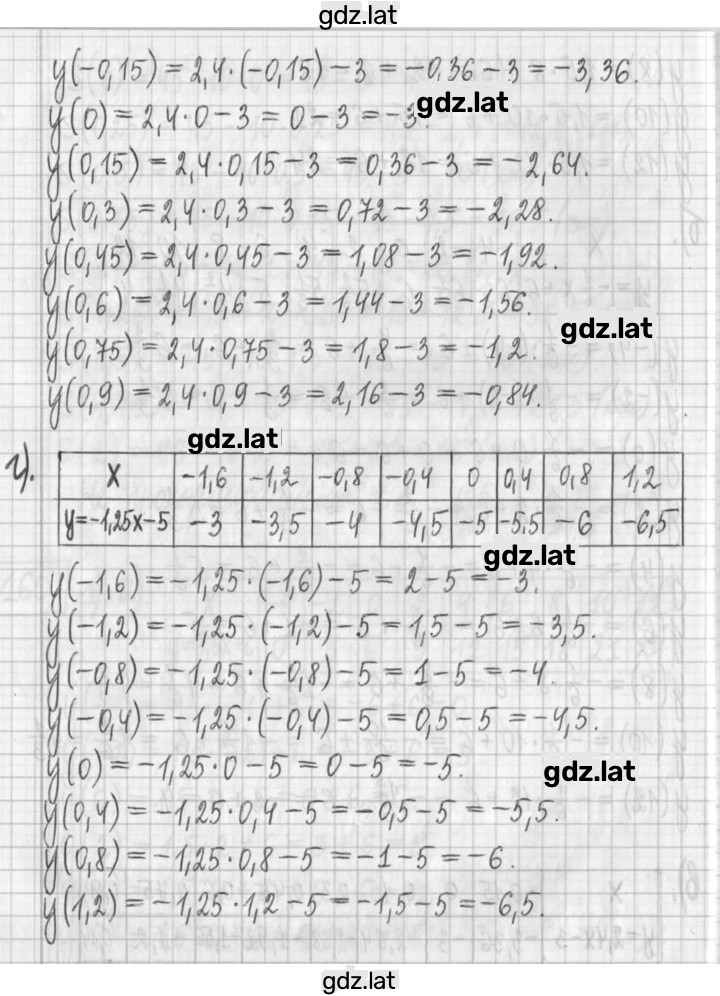 gdz.lat
y(-0,15) = 2,4·(-0,15) - 3 = -0,36 - 3 = -3,36.
y(0) = 2,4·0 - 3 = 0 - 3 = -3.
gdz.lat
y(0,15) = 2,4·0,15 - 3 = 0,36 - 3 = -2,64.
y(0,3) = 2,4·0,3 - 3 = 0,72 - 3 = -2,28.
y(0,45) = 2,4·0,45 - 3 = 1,08 - 3 = -1,92.
y(0,6) = 2,4·0,6 - 3 = 1,44 - 3 = -1,56.
gdz.lat
y(0,75) = 2,4·0,75 - 3 = 1,8 - 3 = -1,2.
y(0,9) = 2,4·0,9 - 3 = 2,16 - 3 = -0,84.
gdz.lat
г). x -1,6 -1,2 -0,8 -0,4 0 0,4 0,8 1,2
y=-1,25x-5 -3 -3,5 -4 -4,5 -5 -5.5 -6 -6,5
gdz.lat
y(-1,6) = -1,25·(-1,6) - 5 = 2 - 5 = -3.
y(-1,2) = -1,25·(-1,2) - 5 = 1,5 - 5 = -3,5.
y(-0,8) = -1,25·(-0,8) - 5 = 1 - 5 = -4.
y(-0,4) = -1,25·(-0,4) - 5 = 0,5 - 5 = -4,5.
y(0) = -1,25·0 - 5 = 0 - 5 = -5.
gdz.lat
y(0,4) = -1,25·0,4 - 5 = -0,5 - 5 = -5,5.
y(0,8) = -1,25·0,8 - 5 = -1 - 5 = -6.
y(1,2) = -1,25·1,2 - 5 = -1,5 - 5 = -6,5.
gdz.lat